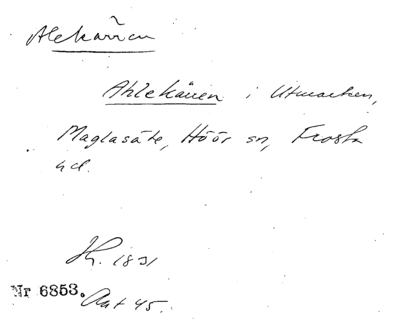 Alekärren
Ahlekären i Utmarken,
Maglasäte, Höör sn, Frosta
hd.
1831
Nr 6853. Akt 45.